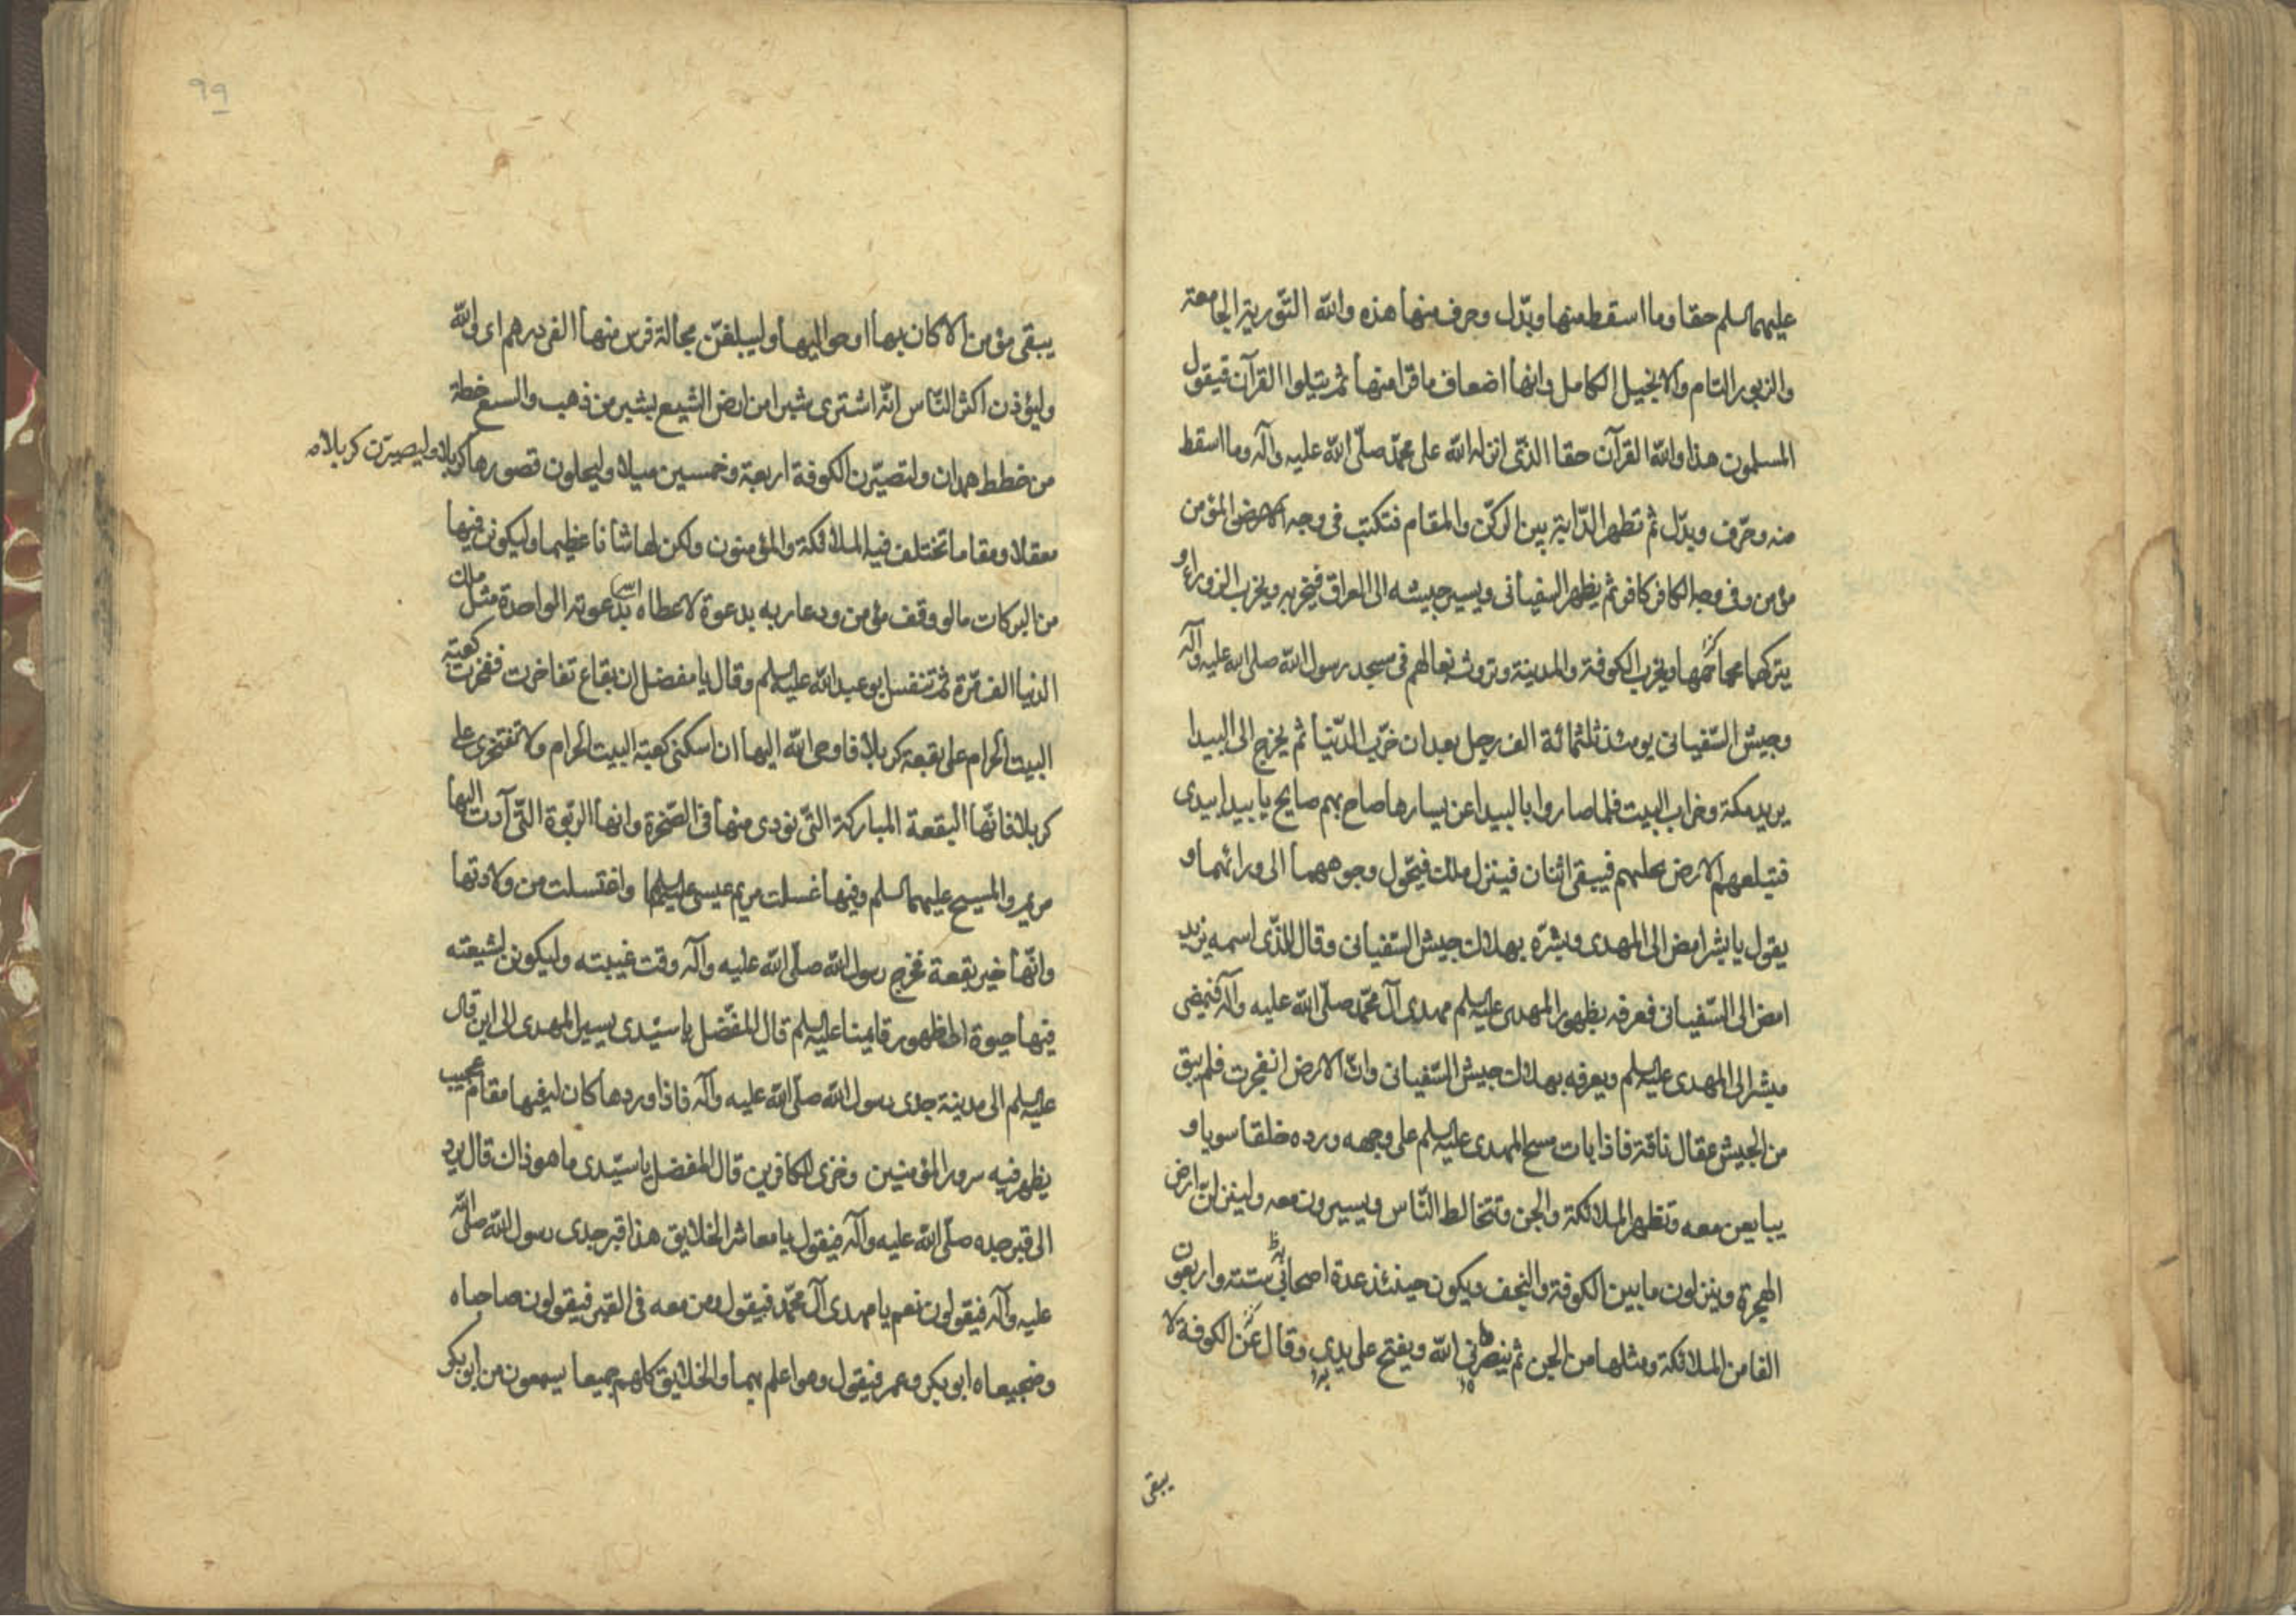 عليهما السلم حقا وما اسقط منها وبدّل وحرف منها هذه والله التّورية الجامعة
والزبور التام والانجيل الكامل وانها اضعاف ما قرا منها ثم يتلوا القرآن فيقول
المسلمون هذا والله القرآن حقا الذّى انزله الله على محمّد صلّى الله عليه وآله وما اسقط
منه وحرّف وبدّل ثم تظهر الدّابة بين الركن والمقام فتكتب فى وجه المؤمن
مؤمن وفى وجه الكافر كافر ثم يظهر السفيانى ويسير جيشه الى العراق فيخربه ويخرب الزوراء و
يتركهما حمما ويخرب الكوفة والمدينة وتروث بغالهم فى مسجد رسول الله صلى الله عليه وآله
وجيش السّفيانى يومئذ ثلثمائة الف رجل بعد ان خرّب الدّنيا ثم يخرج الى البيدا
يريد مكة وخراب البيت فلما صاروا بالبيدا عن يسارها صاح بهم صايح يا بيدا بيدى
فتبلعهم الارض فيبقى اثنان فينزل ملك فيحّول وجوههما الى ورائهما و
يقول يا بشر امض الى المهدى وبشرّه بهلاك جيش السّفيانى وقال للذّى اسمه نزيد
امض الى السّفيانى فعرفه بظهور المهدى عليه السلم مهدى آل محمّد صلّى الله عليه وآله فيمضى
مبشرا الى المهدى عليه السلم ويعرفه بهلاك جيش السّفيانى وانّ الارض انفجرت فلم يبق
من الجيش عقال ناقة فاذا بات مسح المهدى عليه السلم على وجهه ورده خلقا سويا و
يبايعن معه وتظهر الملائكة والجن وتتخالط النّاس ويسيرون معه ولينزلنّ ارض
الهجرة وينزلون ما بين الكوفة والنجف ويكون حينئذ عدة اصحابه ستته واربعون
الفا من الملائكة ومثلها من الجن ثم ينصره الله ويفتح على يديه وقال عن الكوفة لا
يبقى
٩٩
يبقى مؤمن الا كان بها او حواليها وليبلغنّ مجالة فرس منها الفى درهم اى والله
وليؤذن اكثر النّاس انّه اشترى شبرا من ارض السّبع بشبر من ذهب والسبع خطة
من خطط همدان ولتصيّرن الكوفة اربعة وخمسين ميلا وليحلون قصورها كربلا وليصيرّن كربلا مه
معقلا ومقاما تختلف فيه الملائكة والمؤمنون ولكن لها شانا عظيما وليكونن فيها
من البركات ما لو وقف مؤمن ودعا ربه بدعوة لاعطاه الله بدعوته الواحدة مثل ملك
الدنيا الف مّرة ثم تنفس ابو عبد الله عليه السلم وقال يا مفضل ان بقاع تفاخرت ففخرت كعبة
البيت الحرام على بقعة كربلا فاوحى الله اليها ان اسكنى كعبة البيت الحرام ولا تفتخرى على
كربلا فانّها البقعة المباركة التّى نودى منها فى الصّخرة وانها الربّوة التّى آدت اليها
مريم والمسيح عليهما السلم وفيها غسلت مريم عيسى عليهما السلم واغتسلت من ولادتها
وانّها خير بقعة تخرج رسول الله صلّى الله عليه وآله وقت غيبته وليكونن لشيعته
فيها حيوة الى ظهور قايمنا عليه السلم قال المفضّل يا سيّدى يسير المهدى الى اين قال
عليه السلم الى مدينة جدى رسول الله صلّى الله عليه وآله فاذا وردها كان له فيها مقام عجيب
يظهر فيه سرور المؤمنين وخزى الكافرين قال المفضل يا سيّدى ما هو ذاك قال يرد
الى قبر جده صلّى الله عليه وآله فيقول يا معاشر الخلايق هذا قبر جدى رسول الله صلّى الله
عليه وآله فيقولون نعم يا مهدى آل محمّد فيقول ومن معه فى القبر فيقولون صاحباه
وضجيعاه ابو بكر وعمر فيقول وهو اعلم بهما والخلايق كلهم جميعا يسمعون من ابو بكر